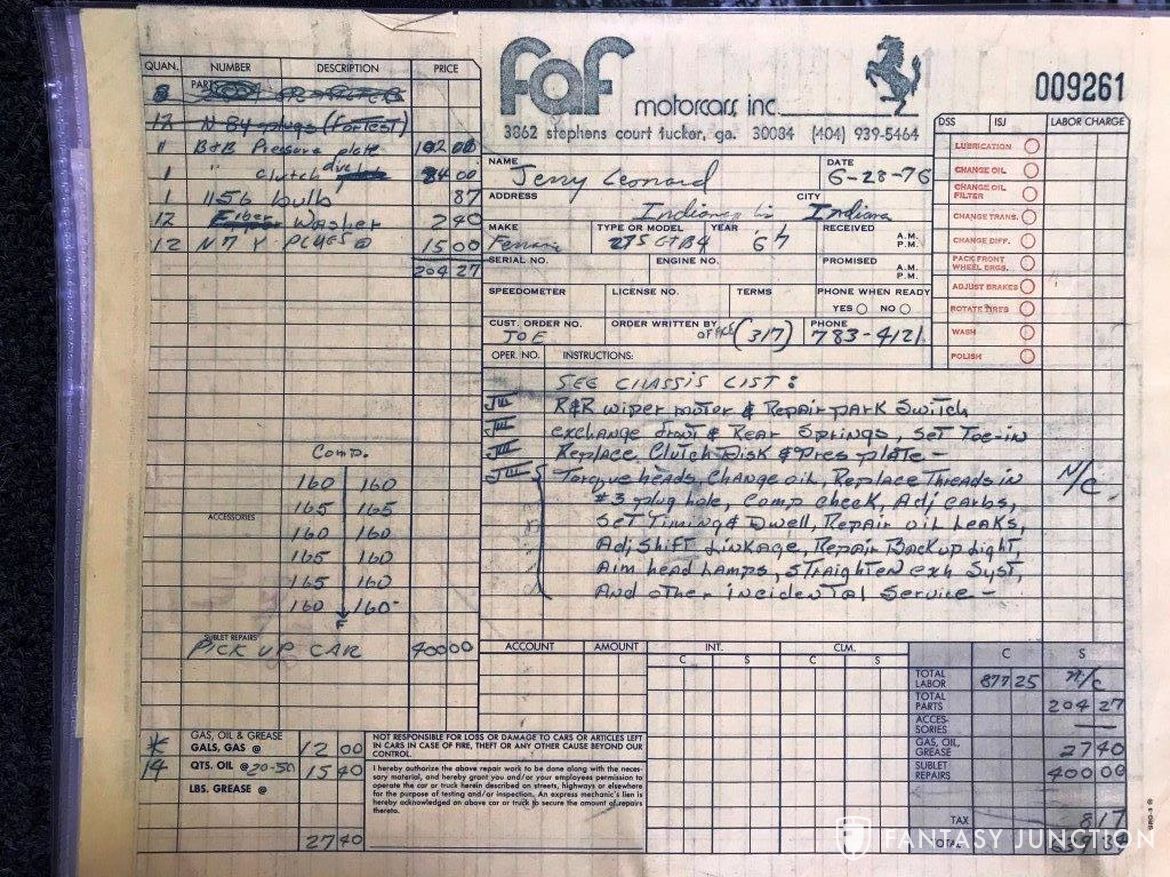 faf
motorcars inc.
3862 stephens court tucker, ga. 30084 (404) 939-5464
009261
QUAN. NUMBER DESCRIPTION PRICE
8 PART
12 N 84 plugs (For Test)
1 B&B Pressure plate 102 00
1 " clutch disc 84 00
1 1156 bulb 87
12 Fiber Washer 2 40
12 N 7 Y PLUGS @ 15 00
204 27
NAME Jerry Leonard DATE 6-28-76
ADDRESS CITY
Indianapolis Indiana
MAKE TYPE OR MODEL YEAR RECEIVED A.M. P.M.
Ferrari 275 GTB4 67
SERIAL NO. ENGINE NO. PROMISED A.M. P.M.
SPEEDOMETER LICENSE NO. TERMS PHONE WHEN READY
YES NO
CUST. ORDER NO. ORDER WRITTEN BY PHONE
JOE office (317) 783-4121
DSS ISJ LABOR CHARGE
LUBRICATION
CHANGE OIL
CHANGE OIL FILTER
CHANGE TRANS.
CHANGE DIFF.
PACK FRONT WHEEL BRGS.
ADJUST BRAKES
ROTATE TIRES
WASH
POLISH
OPER. NO. INSTRUCTIONS:
SEE CHASSIS LIST:
R&R wiper motor & Repair park Switch
exchange front & Rear Springs, Set Toe-in
Replace Clutch Disk & Pres plate -
Torque heads, Change oil, Replace Threads in N/C
#3 plug hole, Comp check, Adj carbs,
Set Timing & Dwell, Repair oil Leaks,
Adj Shift Linkage, Repair Backup Light,
Aim head Lamps, straighten exh Syst,
And other incidental Service -
Comp.
160 160
165 165
ACCESSORIES
160 160
165 160
165 160
160 160
F
SUBLET REPAIRS
PICK UP CAR 400 00
GAS, OIL & GREASE
GALS, GAS @ 12 00
14 QTS. OIL @ 20-50 15 40
LBS. GREASE @
27 40
NOT RESPONSIBLE FOR LOSS OR DAMAGE TO CARS OR ARTICLES LEFT
IN CARS IN CASE OF FIRE, THEFT OR ANY OTHER CAUSE BEYOND OUR
CONTROL.
I hereby authorize the above repair work to be done along with the neces-
sary material, and hereby grant you and/or your employees permission to
operate the car or truck herein described on streets, highways or elsewhere
for the purpose of testing and/or inspection. An express mechanic's lien is
hereby acknowledged on above car or truck to secure the amount of repairs
thereto.
ACCOUNT AMOUNT INT. CLM.
C S C S C S
TOTAL LABOR 877 25 N/C
TOTAL PARTS 204 27
ACCES- SORIES —
GAS, OIL, GREASE 27 40
SUBLET REPAIRS 400 00
TAX 8 17
TOTAL
FANTASY JUNCTION